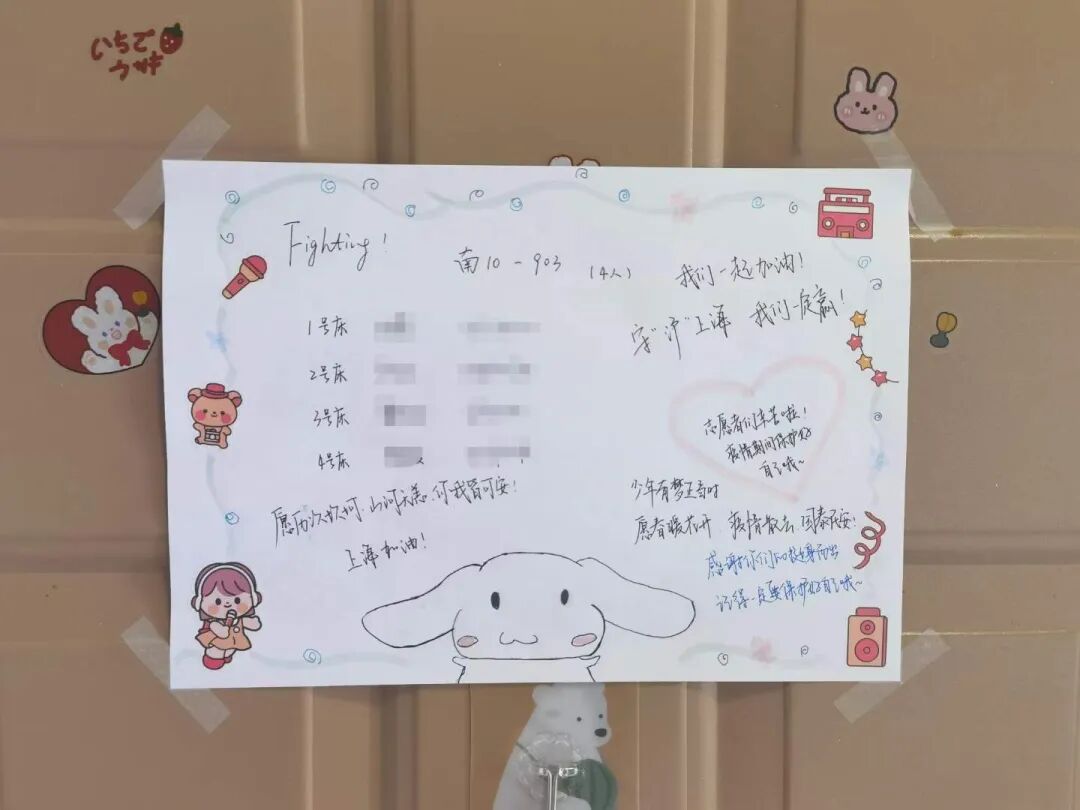 いちご
うさぎ
Fighting!
南10-903 (4人)
我们一起加油!
守"沪"上海 我们一定赢!
1号床
2号床
3号床
4号床
志愿者们辛苦啦!
疫情期间保护好
自己哦~
愿历尽坎坷,山河无恙,你我皆可安!
上海加油!
少年有梦正当时
愿春暖花开,疫情散去,国泰民安!
感谢你们的挺身而出
记得一定要保护好自己哦~